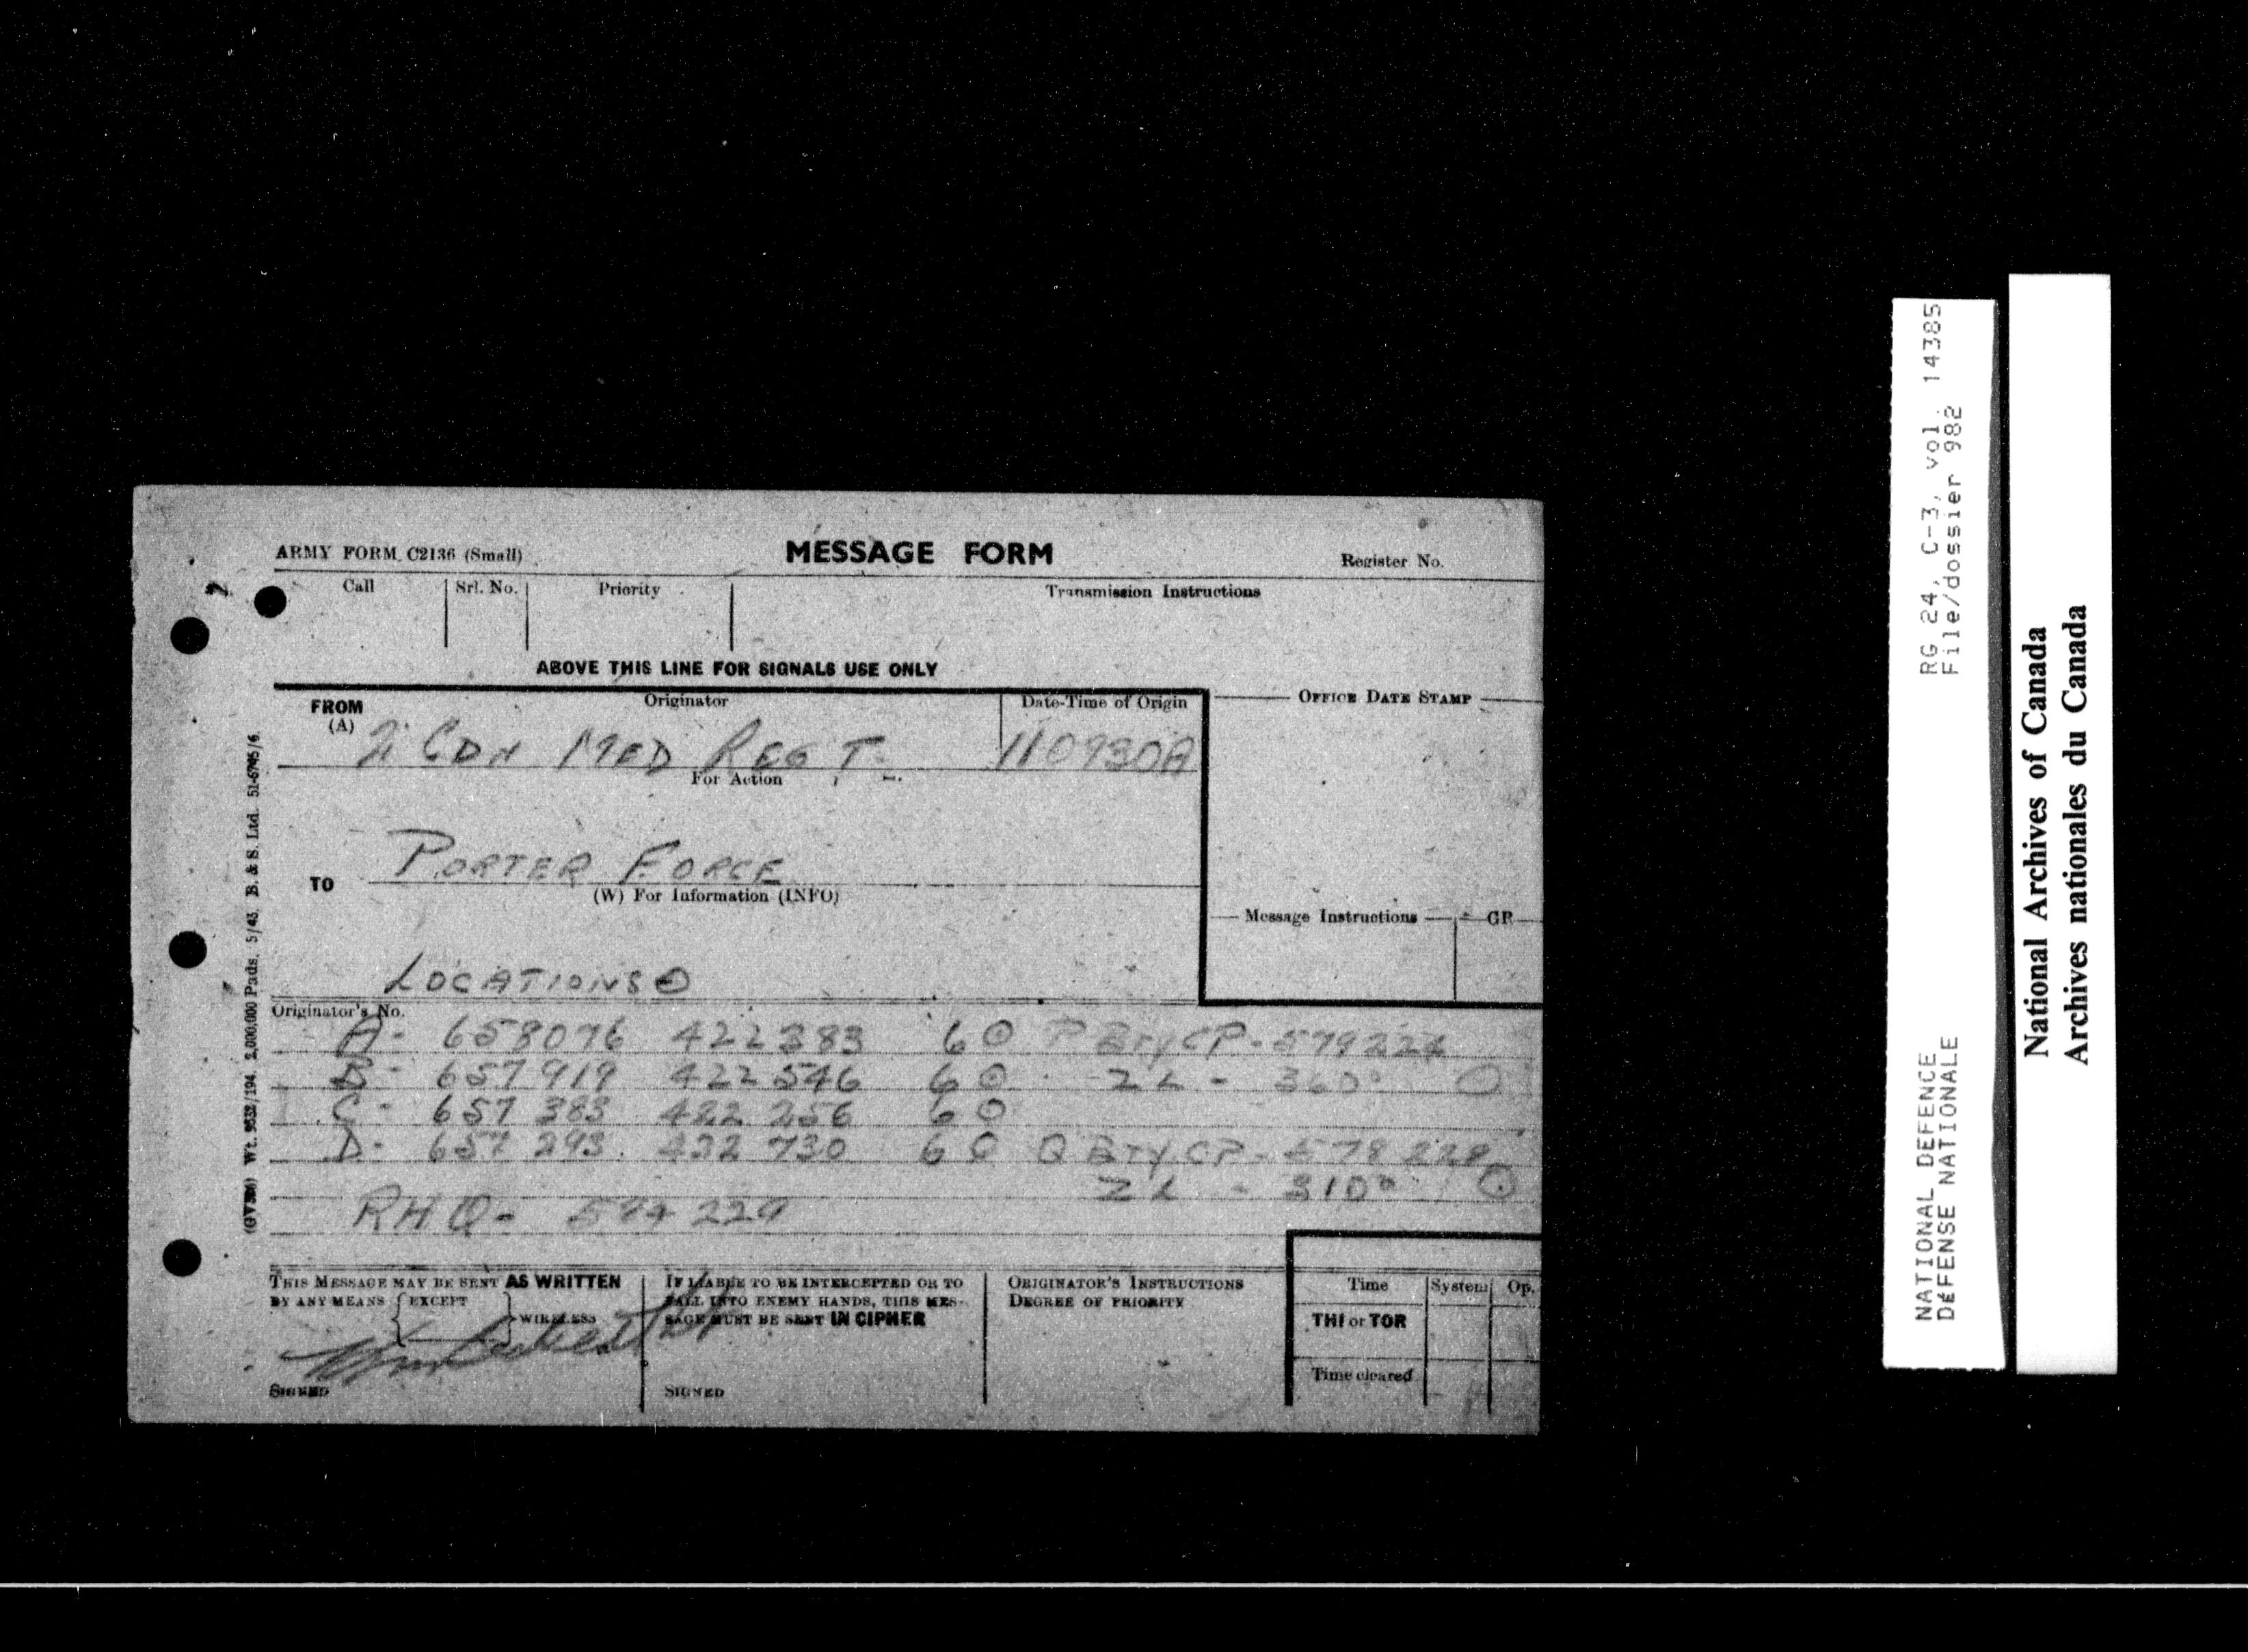 ARMY FORM C2136 (Small)
MESSAGE FORM
Register No.
Call
Srl. No.
Priority
Transmission Instructions
ABOVE THIS LINE FOR SIGNALS USE ONLY
FROM
(A)
Originator
Date-Time of Origin
OFFICE DATE STAMP
2 CDN MED REGT.
110930A
For Action
PORTER FORCE
TO
(W) For Information (INFO)
Message Instructions
GR
LOCATIONS
Originator's No.
A - 658076 422383 6 P Bty CP - 579224
B - 657919 422546 6 ZL - 360°
C - 657 383 422 256 6
D - 657 293 422 730 6 Q BTY CP - 578 228
ZL - 310°
RHQ - 574 229
THIS MESSAGE MAY BE SENT AS WRITTEN
BY ANY MEANS { EXCEPT } WIRELESS
SIGNED
IF LIABLE TO BE INTERCEPTED OR TO
FALL INTO ENEMY HANDS, THIS MES-
SAGE MUST BE SENT IN CIPHER
SIGNED
ORIGINATOR'S INSTRUCTIONS
DEGREE OF PRIORITY
Time
System
Op.
THI or TOR
Time cleared
2,000,000 Pads. 5/43. B. & S. Ltd. 51-6745/6
RG 24, C-3, vol. 14385
File/dossier 982
NATIONAL DEFENCE
DÉFENSE NATIONALE
National Archives of Canada
Archives nationales du Canada